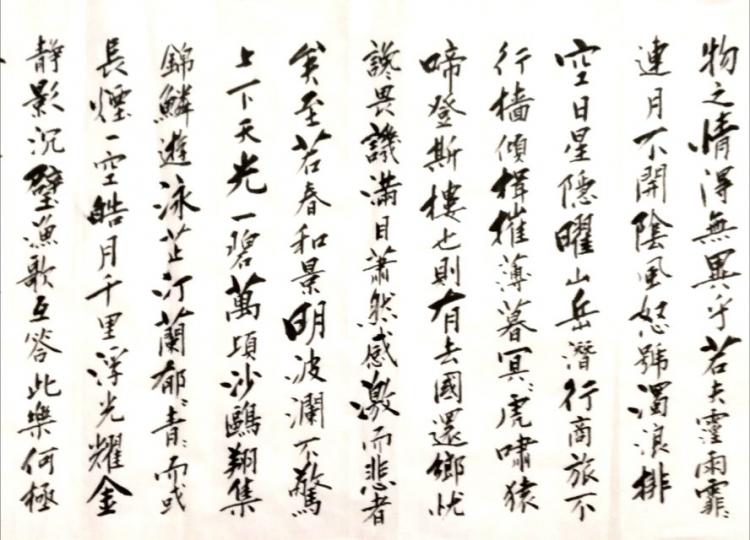 物之情得無異乎若夫霪雨霏〻
連月不開陰風怒號濁浪排
空日星隱曜山岳潛行商旅不
行檣傾楫摧薄暮冥〻虎嘯猿
啼登斯樓也則有去國還鄉忧
讒畏譏滿目蕭然感激而悲者
矣至若春和景明波瀾不驚
上下天光一碧萬頃沙鷗翔集
錦鱗遊泳芷汀蘭郁〻青〻而或
長煙一空皓月千里浮光耀金
静影沉璧漁歌互答此樂何極